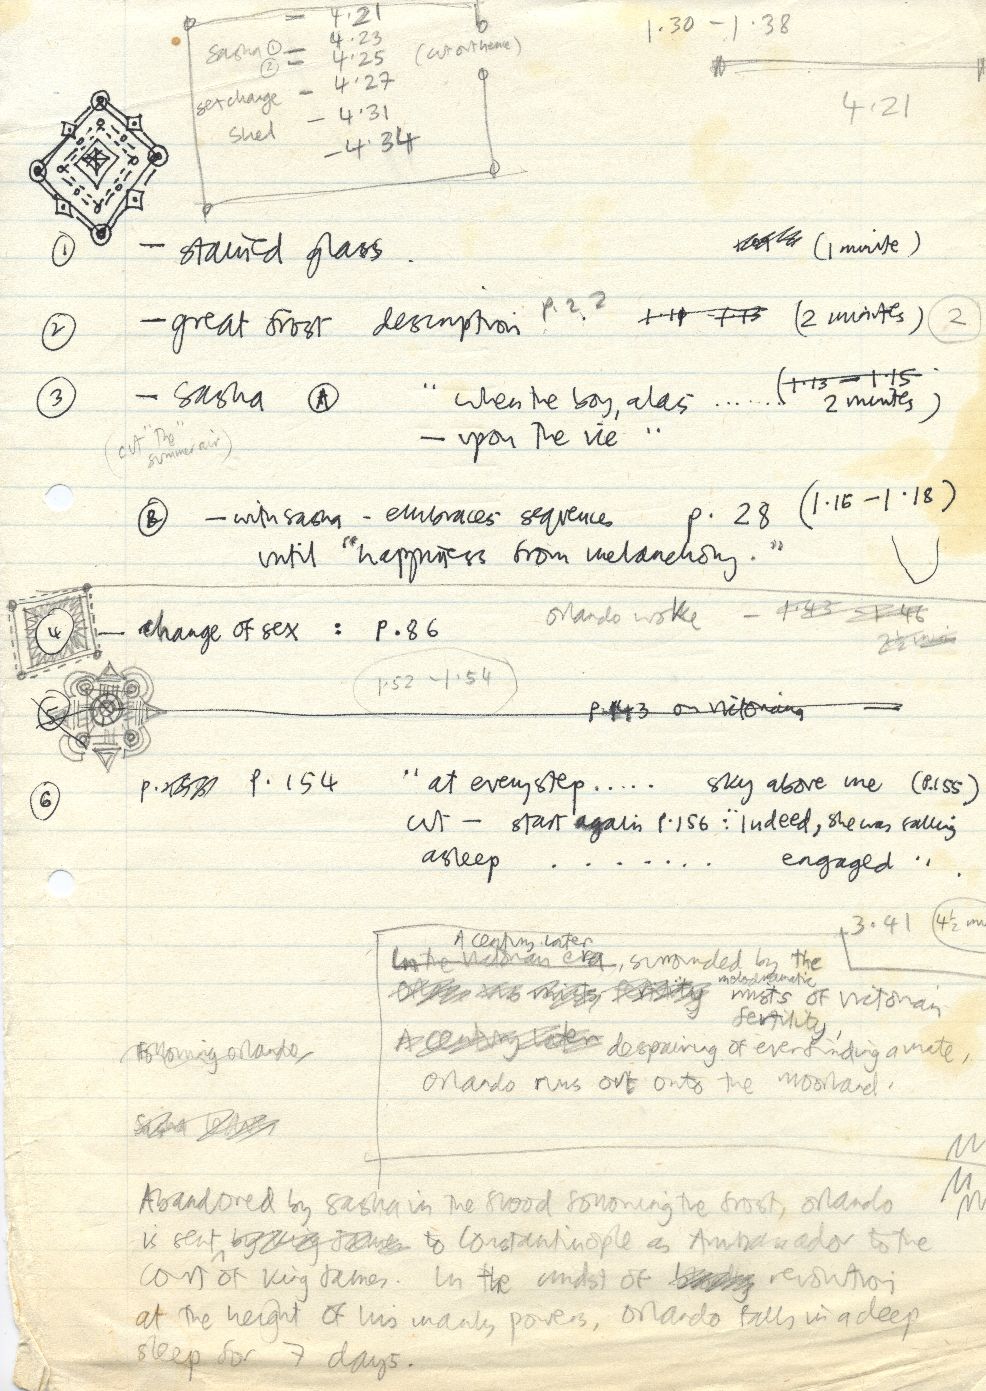 = 4.21
4.23
sasha ① = 4.25 (cut out here)
②
- 4.27
set change
- 4.31
shed
- 4.34
1.30 - 1.38
4.21
① - stained glass. (1 minute)
② - great frost description p.22 (2 minutes) 2
③ - sasha Ⓐ " when the boy, alas ...... (1.13 - 1.15
2 minutes)
- upon the vie "
(cut "the"
summer air)
Ⓑ - with sasha - embraces sequences p. 28 (1.16 - 1.18)
until "happiness from melancholy."
④ - change of sex : p.86 orlando woke - 1.43 1.46
2½ min
1.52 - 1.54
5 p.143 on victoriana
⑥ p. p. 154 " at every step..... sky above me (p.155)
cut - start again p.156 : "Indeed, she was falling
asleep ........ engaged ".
3.41 4½
A century later
In the Victorian era, surrounded by the
melodramatic
fertility mists of Victorian
fertility,
Following orlando
A century later despairing of ever finding a mate,
orlando runs out onto the moorland.
Sasha
Abandoned by sasha in the flood following the frost, orlando
is sent by king James to Constantinople as Ambassador to the
court of King James. In the midst of revolution
at the height of his manly powers, orlando falls in a deep
sleep for 7 days.